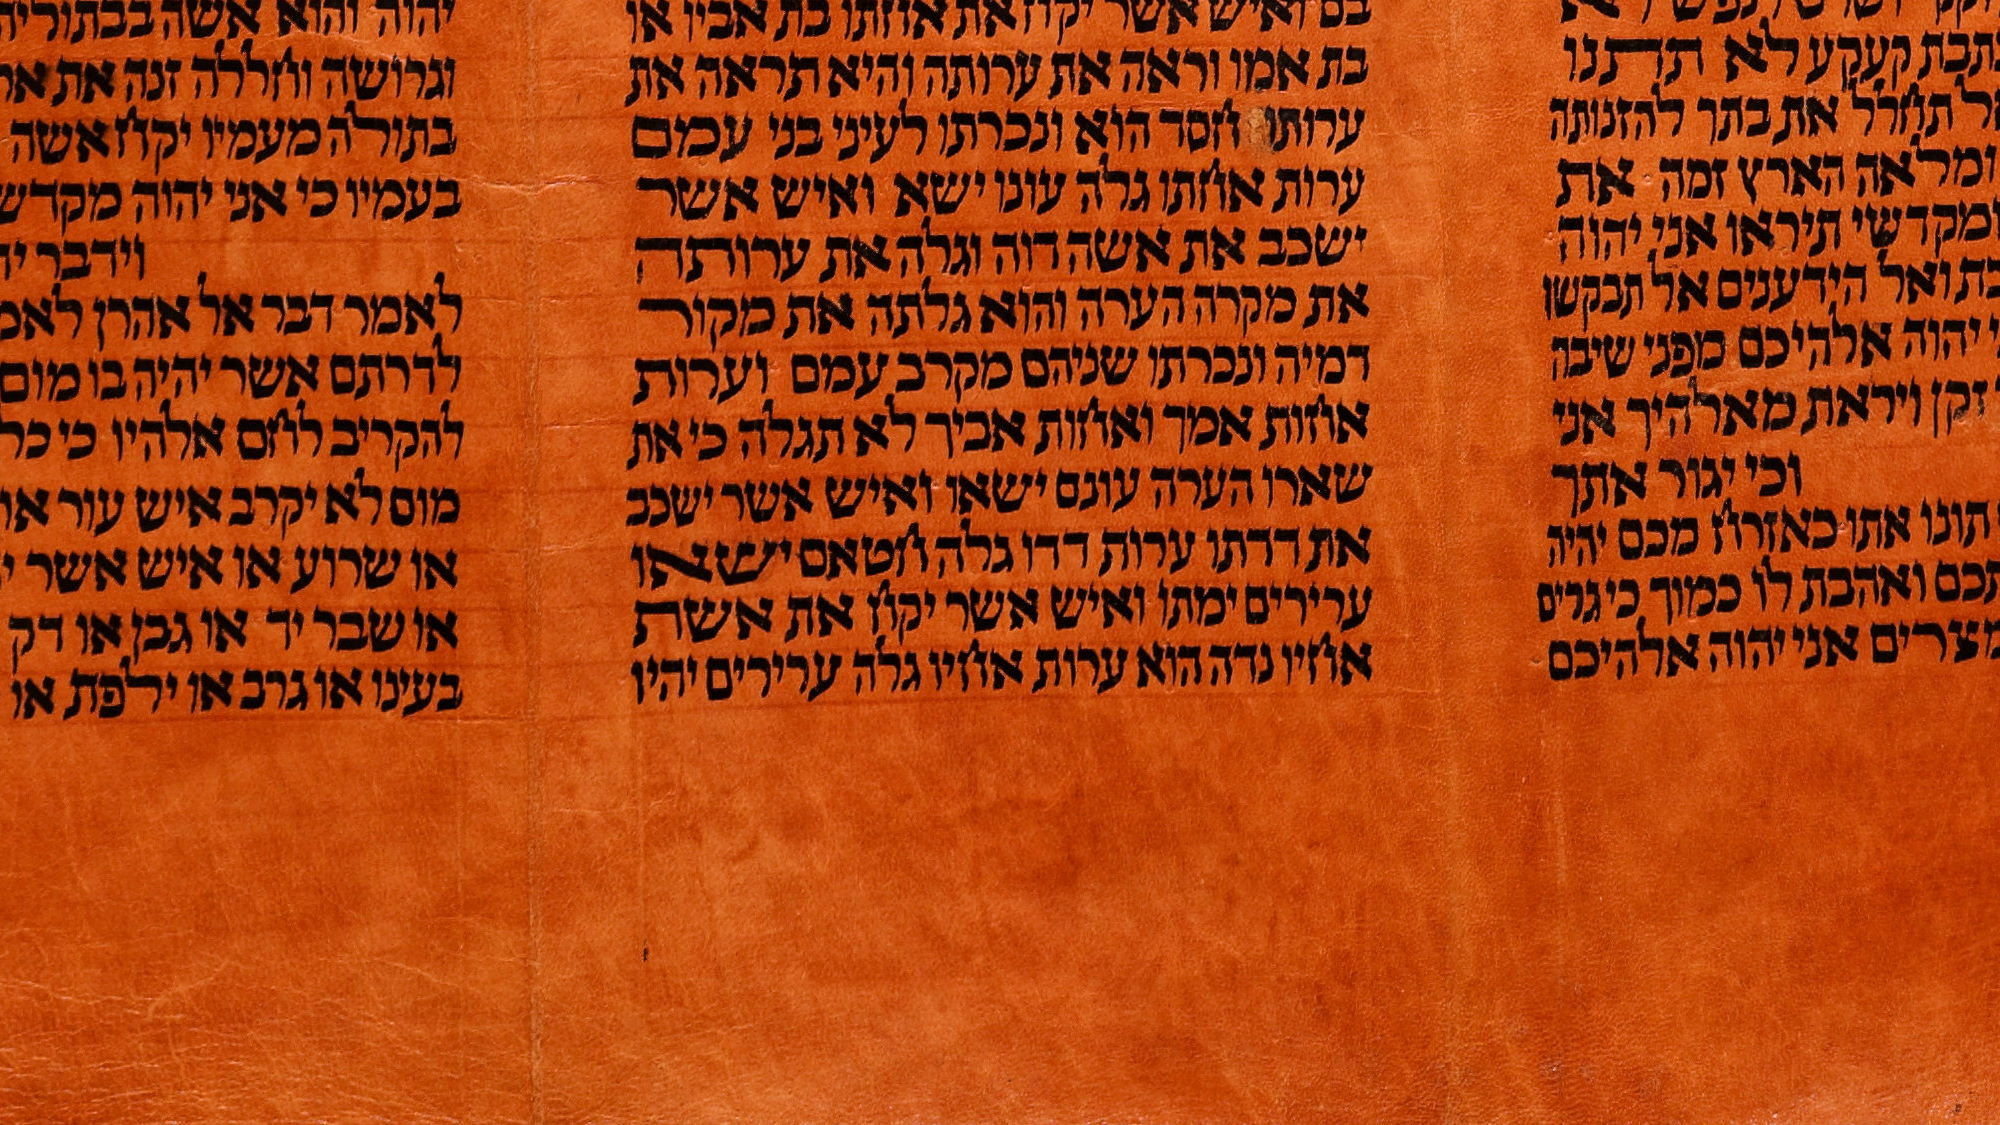 קעקע לא תתנו
תחלל את בתך להזנותה
ומלאה הארץ זמה את
ומקדשי תיראו אני יהוה
ואל הידענים אל תבקשו
יהוה אלהיכם מפני שיבה
זקן ויראת מאלהיך אני
וכי יגור אתך
תונו אתו כאזרח מכם יהיה
ואהבת לו כמוך כי גרים
מצרים אני יהוה אלהיכם
ואיש אשר יקח את אחתו בת אביו או
בת אמו וראה את ערותה והיא תראה את
ערותו חסד הוא ונכרתו לעיני בני עמם
ערות אחתו גלה עונו ישא ואיש אשר
ישכב את אשה דוה וגלה את ערותה
את מקרה הערה והוא גלתה את מקור
דמיה ונכרתו שניהם מקרב עמם וערות
אחות אמך ואחות אביך לא תגלה כי את
שארו הערה עונם ישאו ואיש אשר ישכב
את דדתו ערות דדו גלה חטאם ישאו
ערירים ימתו ואיש אשר יקח את אשת
אחיו נדה הוא ערות אחיו גלה ערירים יהיו
יהוה והוא אשה בבתוליה
וגרושה וחללה זנה את
בתולה מעמיו יקח אשה
בעמיו כי אני יהוה
וידבר
לאמר דבר אל אהרן
לדרתם אשר יהיה בו מום
להקריב לחם אלהיו כי כל
מום לא יקרב איש עור או
או שרוע או איש אשר
או שבר יד או גבן או דק
בעינו או גרב או ילפת או